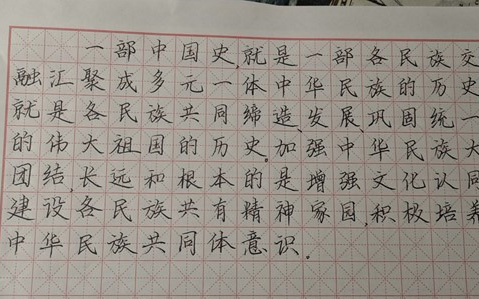 一部中国史,就是一部各民族交
融汇聚成多元一体中华民族的历史
就是各民族共同缔造、发展、巩固统一
的伟大祖国的历史。加强中华民族大
团结,长远和根本的是增强文化认同
建设各民族共有精神家园,积极培养
中华民族共同体意识。